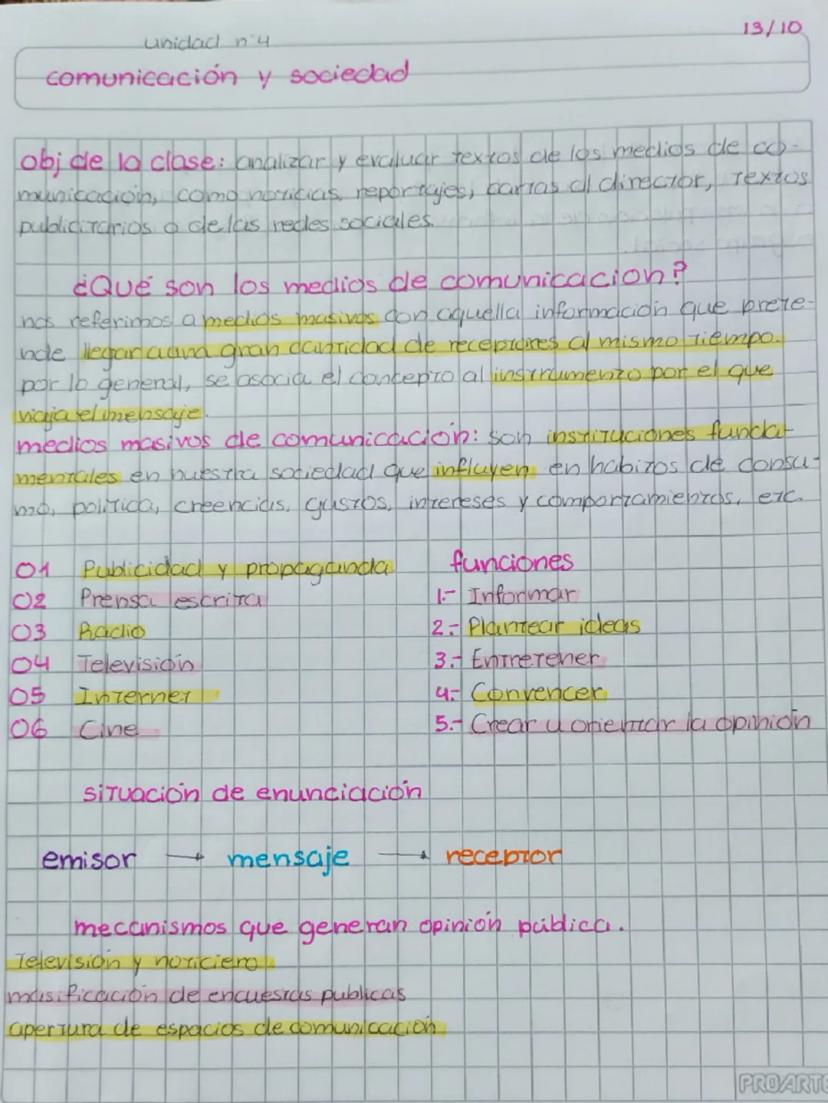 13/10
unidad n°4
comunicación y sociedad
obj de la clase: analizar y evaluar textos de los medios de co-
municación, como noticias, reportajes, cartas al director, textos
publicitarios o de las redes sociales.
¿Qué son los medios de comunicacion?
nos referimos a medios masivos con aquella información que prete-
nde llegar a una gran cantidad de receptores al mismo tiempo.
por lo general, se asocia el concepto al instrumento por el que
viaja el mensaje.
medios masivos de comunicación: son instituciones funda-
mentales en nuestra sociedad que influyen en habitos de consu-
mo, politica, creencias, gustos, intereses y comportamientos, etc.
01 Publicidad y propaganda
02 Prensa escrita
03 Radio
04 Televisión
05 Internet
06 Cine
funciones
1.- Informar
2.- Plantear ideas
3.- Entretener
4.- Convencer
5.- Crear y orientar la opinión
situación de enunciación
emisor → mensaje → receptor
mecanismos que generan opinión pública.
Televisión y noticiero.
masificación de encuestas publicas
apertura de espacios de comunicación
PROARTE